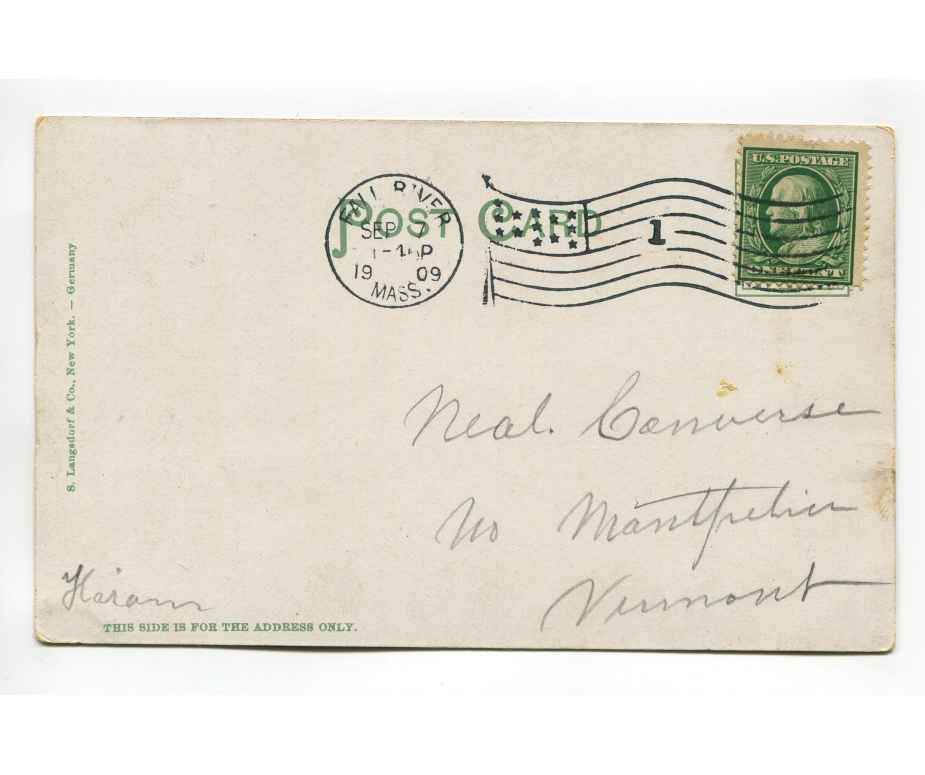 FALL RIVER
SEP 7
19 09
MASS.
POST CARD
1
U.S. POSTAGE
S. Langsdorf & Co., New York. — Germany
Neal. Converse
No Montpelier
Vermont
Hiram
THIS SIDE IS FOR THE ADDRESS ONLY.